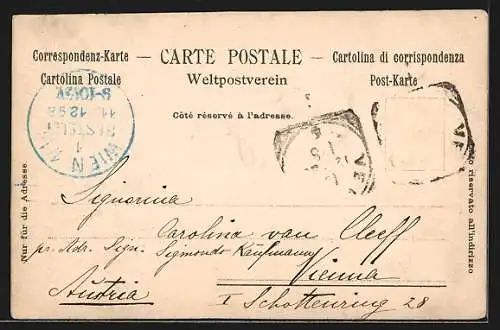 Correspondenz-Karte — CARTE POSTALE — Cartolina di corrispondenza
Cartolina Postale Weltpostverein Post-Karte
Côté réservé à l'adresse.
WIEN 1/1
BESTELLT
1
11. 12 98
8-10½V
VE
Signorina
Carolina van Cleeff
pr. Adr. Sign. Sigmondo Kaufmann
Vienna
Austria
I Schottenring 28
Nur für die Adresse.
Lato riservato all'indirizzo